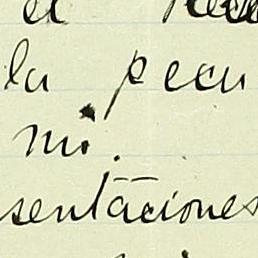 el
la pecu
mi.
sentaciones